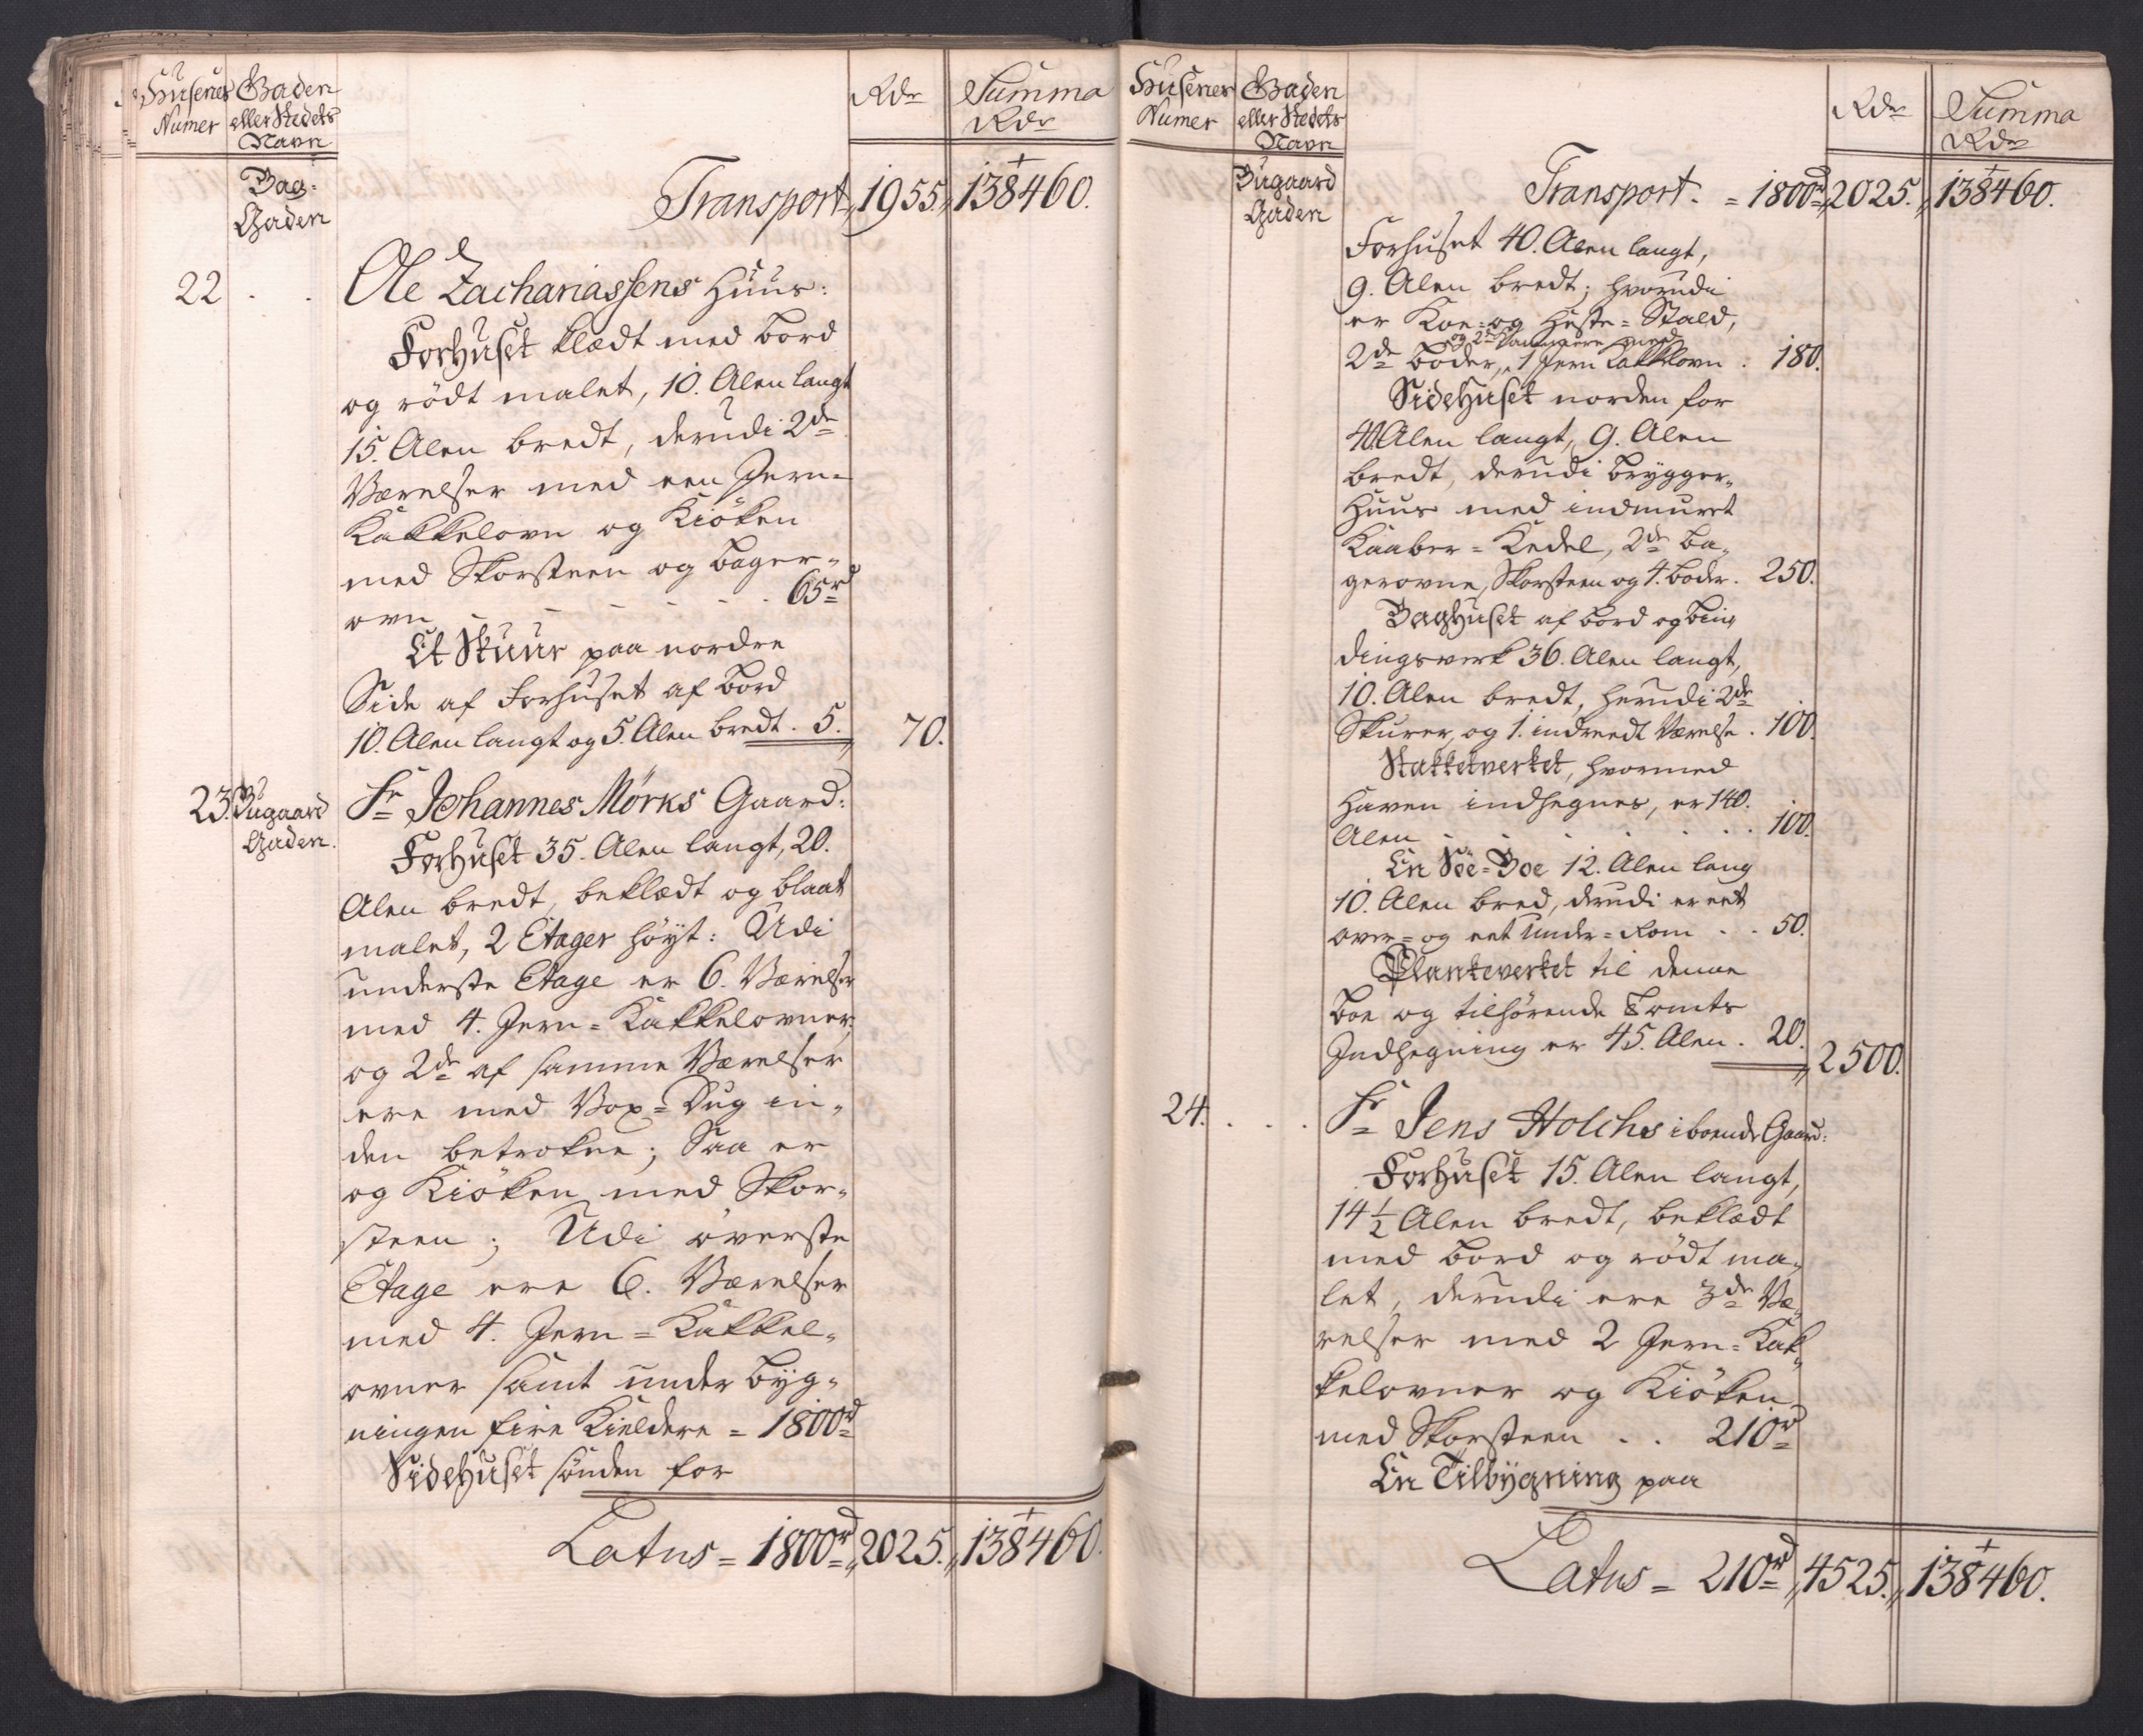 Husenes Numer
Gaden eller Stedets Navn
Rdr
Summa Rdr
Bag-
Gaden
Transport 1955. 138460.
22 . . Ole Zachariassens Huus:
Forhuset klædt med bord
og rødt malet, 10. Alen langt
15. Alen bredt, derudi 2de
Værelser med een Jern-
Kakkelovn og Kiøken
med Skorsteen og bager-
ovn - - - - - 65rd
Et Skuur paa nordre
Side af Forhuset af bord
10. Alen langt og 5. Alen bredt. 5. 70.
23. Bugaard Gaden. Sr Johannes Mørks Gaard:
Forhuset 35. Alen langt, 20.
Alen bredt, beklædt og blaat
malet, 2 Etager høyt: Udi
underste Etage er 6. Værelser
med 4. Jern=Kakkelovner,
og 2de af samme Værelser
ere med Vox=Dug in-
den betrokne; Saa er
og Kiöken med Skor-
steen; Udi øverste
Etage ere 6. Værelser
med 4. Jern=Kakkel-
ovner samt under byg-
ningen fire Kieldere = 1800rd
Sidehuset sönden for
Latus = 1800rd 2025. 138460.
Husenes Numer
Gaden eller Stedets Navn
Rdr
Summa Rdr
Bugaard
Gaden
Transport. = 1800rd 2025. 138460.
Forhuset 40. Alen langt,
9. Alen bredt; hvorudi
er Koe=og Heste=Stald,
og 2de Kammere med
2de boder, 1 Jern Kakklovn . 180.
Sidehuset norden for
40 Alen langt, 9. Alen
bredt, derudi brygger-
Huus med indmuret
Kaaber=Kedel, 2de ba-
gerovne, Skorsteen og 4. boder. 250.
Baghuset af bord og bin-
dingsverk 36. Alen langt,
10. Alen bredt, herudi 2de
Skurer, og 1. indreedt Værelse . 100.
Stakketverket, hvormed
Haven indhegnes, er 140.
Alen - . . . . . 100.
En Söe=Boe 12. Alen lang
10. Alen bred, derudi er eet
over=og eet Under=Rom . . 50.
Plankeverket til denne
boe og tilhørende Tomts
Indhegning er 45. Alen . 20. 2500.
24. . . . Sr Jens Holchs iboende Gaard:
Forhuset 15. Alen langt,
14 1/2 Alen bredt, beklædt
med bord og rödt ma-
let, derudi ere 3de Væ-
relser med 2 Jern=Kak-
kelovner og Kiöken
med Skorsteen . . 210rd
En Tilbygning paa
Latus = 210rd 4525. 138460.